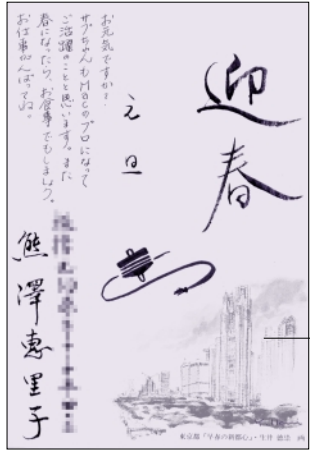 迎春
元旦
お元気ですか?
サブちゃんもMacのプロになって
ご活躍のことと思います。また
春になったら、お食事でもしましょう。
お仕事がんばってね。
熊澤恵里子
東京都「早春の新都心」・生井 巌 画